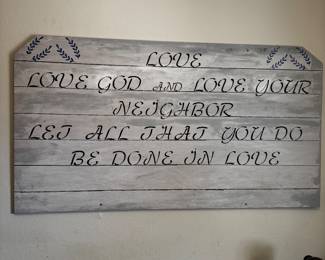 LOVE
LOVE GOD AND LOVE YOUR
NEIGHBOR
LET ALL THAT YOU DO
BE DONE IN LOVE